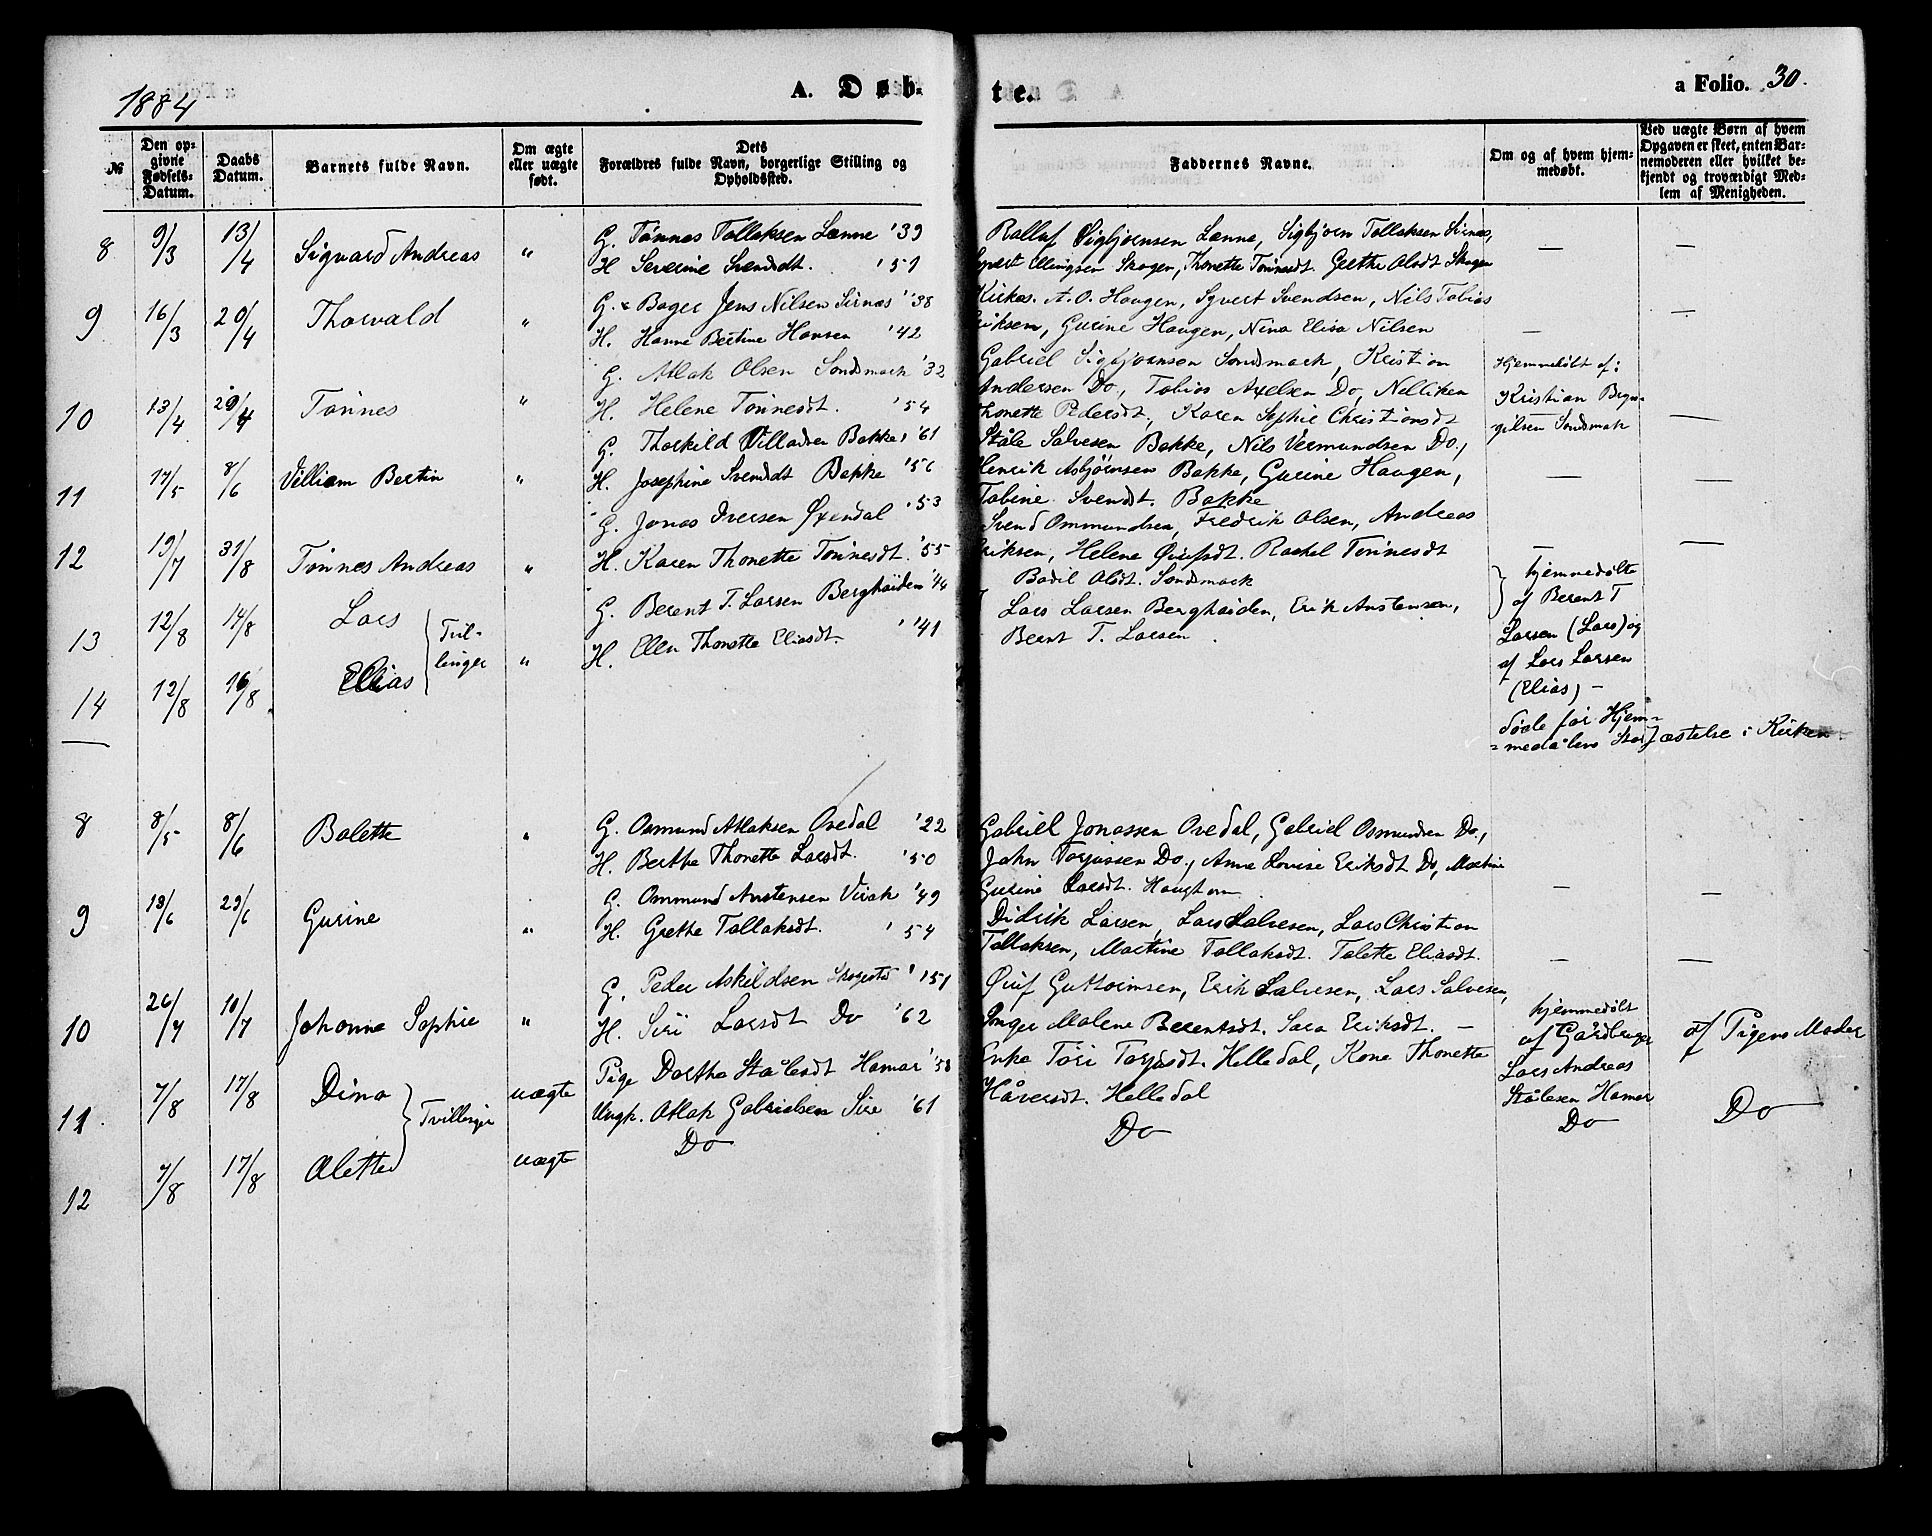 1884
A. Døb-
te.
a Folio. 30.
№
Den op-
givne
Fødsels-
Datum.
Daabs
Datum.
Barnets fulde Navn.
Om ægte
eller uægte
født.
Dets
Forældres fulde Navn, borgerlige Stilling og
Opholdssted.
Faddernes Navne.
Om og af hvem hjem-
medøbt.
Ved uægte Børn af hvem
Opgaven er skeet, enten Bar-
nemoderen eller hvilket be-
kjendt og troværdigt Med-
lem af Menigheden.
8 9/3 13/4 Sigvard Andreas "
G. Tønnes Tollaksen Lænne '39
H Severine Svendsdt. '51
Rolluf Sigbjørnsen Lænne, Sigbjørn Tollaksen Sirnæs,
Syvert Ellingsen Skogen, Thonette Tønnesdt. Grethe Olsdt Skogen
— —
9 16/3 20/4 Thorvald "
G. & Bager Jens Nilsen Sirnæs '38
H. Hanne Bertine Hansen '42
Kirkes. A. O. Haugen, Syvert Svendsen, Nils Tobias
Eriksen, Gurine Haugen, Nina Elisa Nilsen
— —
10 13/4 20/4 Tønnes "
G. Atlak Olsen Sondsmark '32
H. Helene Tønnesdt. '54
Gabriel Sigbjørnsen Sondsmark, Kristian
Andersen Do, Tobias Axelsen Do, Nelliken
Thonette Pedersdt., Karen Sophie Christiansdt
Hjemmedøbt af:
Kristian Bryn-
gilsen Sondsmark
—
11 17/5 8/6 Villiam Bertin "
G. Thorkild Villadsen Bakke '61
H. Josephine Svendsdt Bakke '56
Ståle Salvesen Bakke, Nils Vermundsen Do.,
Henrik Asbjørnsen Bakke, Gurine Haugen,
Tobine Svendsdt. Bakke
— —
12 19/7 31/8 Tønnes Andreas "
G. Jonas Iversen Øxendal '53
H. Karen Thonette Tønnesdt. '55
Svend Ommundsen, Fredrik Olsen, Andreas
Eriksen, Helene Ørufsdt. Rachel Tønnesdt
Bodil Olsdt. Sondsmark
— —
13 12/8 14/8 Lars
14 12/8 16/8 Elias
Tvil-
linger "
G. Berent T. Larsen Berghøiden '40
H. Ellen Thonette Eliasdt. '41
Lars Larsen Berghøiden, Erik Anstensen,
Bernt T. Larsen
hjemmedøbte
af Berent T
Larsen (Lars) og
af Lars Larsen
(Elias) —
døde før Hjem-
medåbens Stadfæstelse i Kirken
8 8/5 8/6 Bolette "
G. Osmund Atlaksen Ovedal '22
H. Berthe Thonette Larsdt. '50
Gabriel Jonassen Ovedal, Gabriel Osmundsen Do.,
John Torjussen Do., Anna Lovise Eriksdt Do, Martine
Gurine Larsdt. Haughom
— —
9 18/6 29/6 Gurine "
G. Ommund Anstensen Virak '49
H. Grethe Tollaksdt. '54
Didrik Larsen, Lars Salvesen, Lars Christian
Tollaksen, Martine Tollaksdt. Tolette Eliasdt.
— —
10 26/4 10/7 Johanne Sophie "
G. Peder Askildsen Skogestad '51
H. Siri Larsdt Do '62
Øruf Guttormsen, Erik Salvesen, Lars Salvesen,
Inger Malene Berentsdt. Sara Eriksdt. —
11 7/8 17/8 Dina uægte
12 7/8 17/8 Olette uægte
Tvillinger
Pige Dorthe Stålesdt Hamar '58
Ungk. Atlak Gabrielsen Sire '61
Do
Enke Tøri Torjusdt. Helledal, Kone Thonette
Håversdt. Helledal
Do
hjemmedøbt
af Gårdbruger
Lars Andreas
Stålesen Hamar
Do
af Pigens Moder
Do